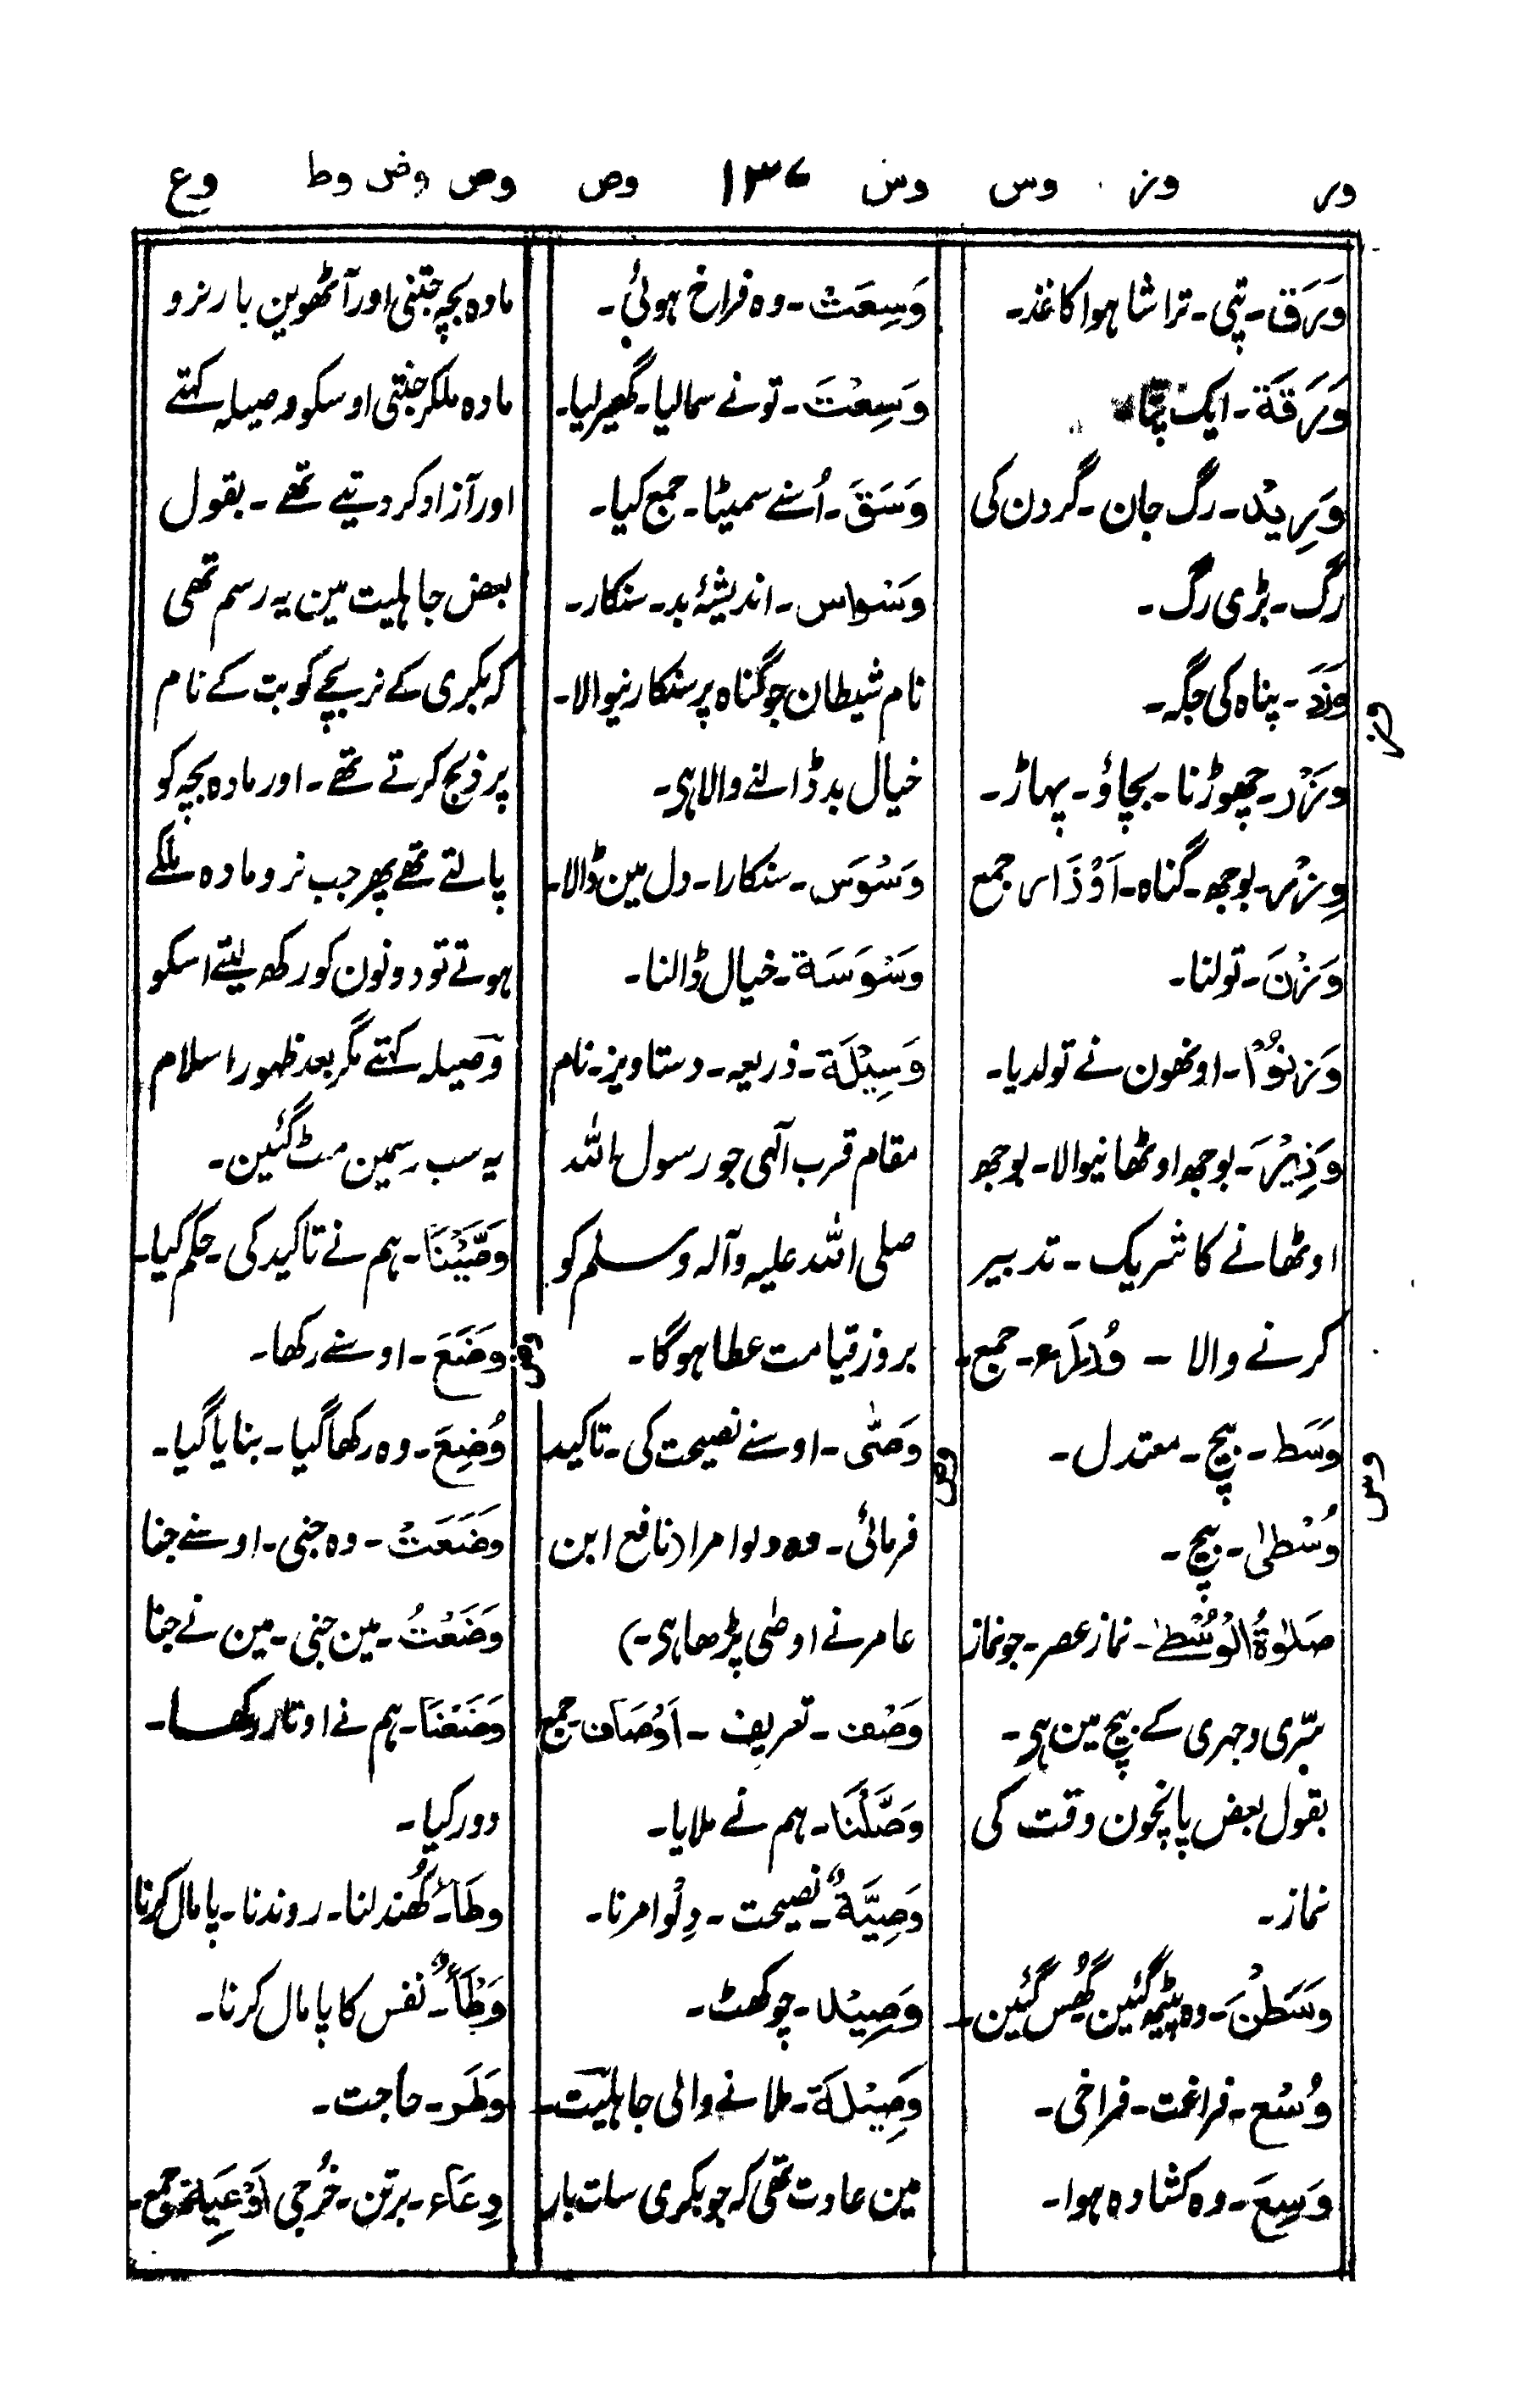 ور وز وس وس ۱۳۷ وص وص وض وط وع
وَرَق۔ پتی۔ تراشا ہوا کاغذ۔
وَرَقَة۔ ایک پتّا
وَرِیْد۔ رگ جان۔ گردن کی
رگ۔ بڑی رگ۔
وز
وَزَر۔ پناہ کی جگہ۔
وَزْر۔ چھوڑنا۔ بچاؤ۔ پہاڑ۔
وِزْر۔ بوجھ۔ گناہ۔ اَوْزَار جمع
وَزْنَ۔ تولنا۔
وَزَنُوْا۔ اونھون نے تولدیا۔
وَزِیْر۔ بوجھ اوٹھانیوالا۔ بوجھ
اوٹھانے کا شریک۔ تدبیر
کرنے والا ۔ وُزَرَاء۔ جمع۔
وس
وَسَط۔ بیچ۔ معتدل۔
وُسْطیٰ۔ بیچ۔
صَلٰوةُ الْوُسْطیٰ۔ نماز عصر۔ جو نماز
سِرّی و جہری کے بیچ مین ہی۔
بقول بعض پانچون وقت کی
نماز۔
وَسَطْنَ۔ وہ بیٹھ گئین گھُس گئین۔
وُسْع۔ فراغت۔ فراخی۔
وَسِعَ۔ وہ کشادہ ہوا۔
وَسِعَتْ۔ وہ فراخ ہوئی۔
وَسِعْتَ۔ تونے سمالیا۔ گھیر لیا۔
وَسَقَ۔ اُسنے سمیٹا۔ جمع کیا۔
وَسْوَاس۔ اندیشۂ بد۔ سنکار۔
نام شیطان جو گناہ پر سنکارنیوالا۔
خیال بد ڈالنے والا ہی۔
وَسْوَسَ۔ سنکارا۔ دل مین ڈالا۔
وَسْوَسَة۔ خیال ڈالنا۔
وَسِیْلَة۔ ذریعہ۔ دستاویز۔ نام
مقام قرب آلہی جو رسول اللہ
صلی اللہ علیہ وآلہ وسلم کو
بروز قیامت عطا ہوگا۔
وص
وَصّٰی۔ اوسنے نصیحت کی۔ تاکید
فرمائی۔ وہ دلوا مرا (نافع ابن
عامر نے اوصٰی پڑھا ہی۔)
وَصْف۔ تعریف ۔ اَوْصَاف جمع
وَصَّلْنَا۔ ہم نے ملایا۔
وَصِیَّةٌ۔ نصیحت۔ دِلْوا مرنا۔
وَصِیْد۔ چوکھٹ۔
وَصِیْلَة۔ ملانے والی جاہلیّت۔
مین عادت تھی کہ جو بکری سات بار
مادہ بچہ جنتی اور آٹھوین بار نر و
مادہ ملکر جنتی اوسکو وصیلہ کہتے
اور آزاد کر دیتے تھے۔ بقول
بعض جاہلیت مین یہ رسم تھی
کہ بکری کے نر بچے کو بت کے نام
پر ذبح کرتے تھے۔ اور مادہ بچہ کو
پالتے تھے پھر جب نر و مادہ ملکے
ہوتے تو دونون کو رکھ لیتے اسکو
وصیلہ کہتے مگر بعد ظہور اسلام
یہ سب رسمین مٹ گئین۔
وَصَّیْنَا۔ ہم نے تاکید کی۔ حکم کیا۔
وض
وَضَعَ۔ اوسنے رکھا۔
وُضِعَ۔ وہ رکھا گیا۔ بنایا گیا۔
وَضَعَتْ۔ وہ جنی۔ اوسنے جنا
وَضَعْتُ۔ مین جنی۔ مین نے جنا
وَضَعْنَا۔ ہم نے اوتار رکھا۔
دور کیا۔
وطَأ۔ گھُندلنا۔ روندنا۔ پامال کرنا
وَطْأً۔ نفس کا پامال کرنا۔
وَطَر۔ حاجت۔
وِعَاء۔ برتن۔ خُرجی اَوْعِیَة جمع۔